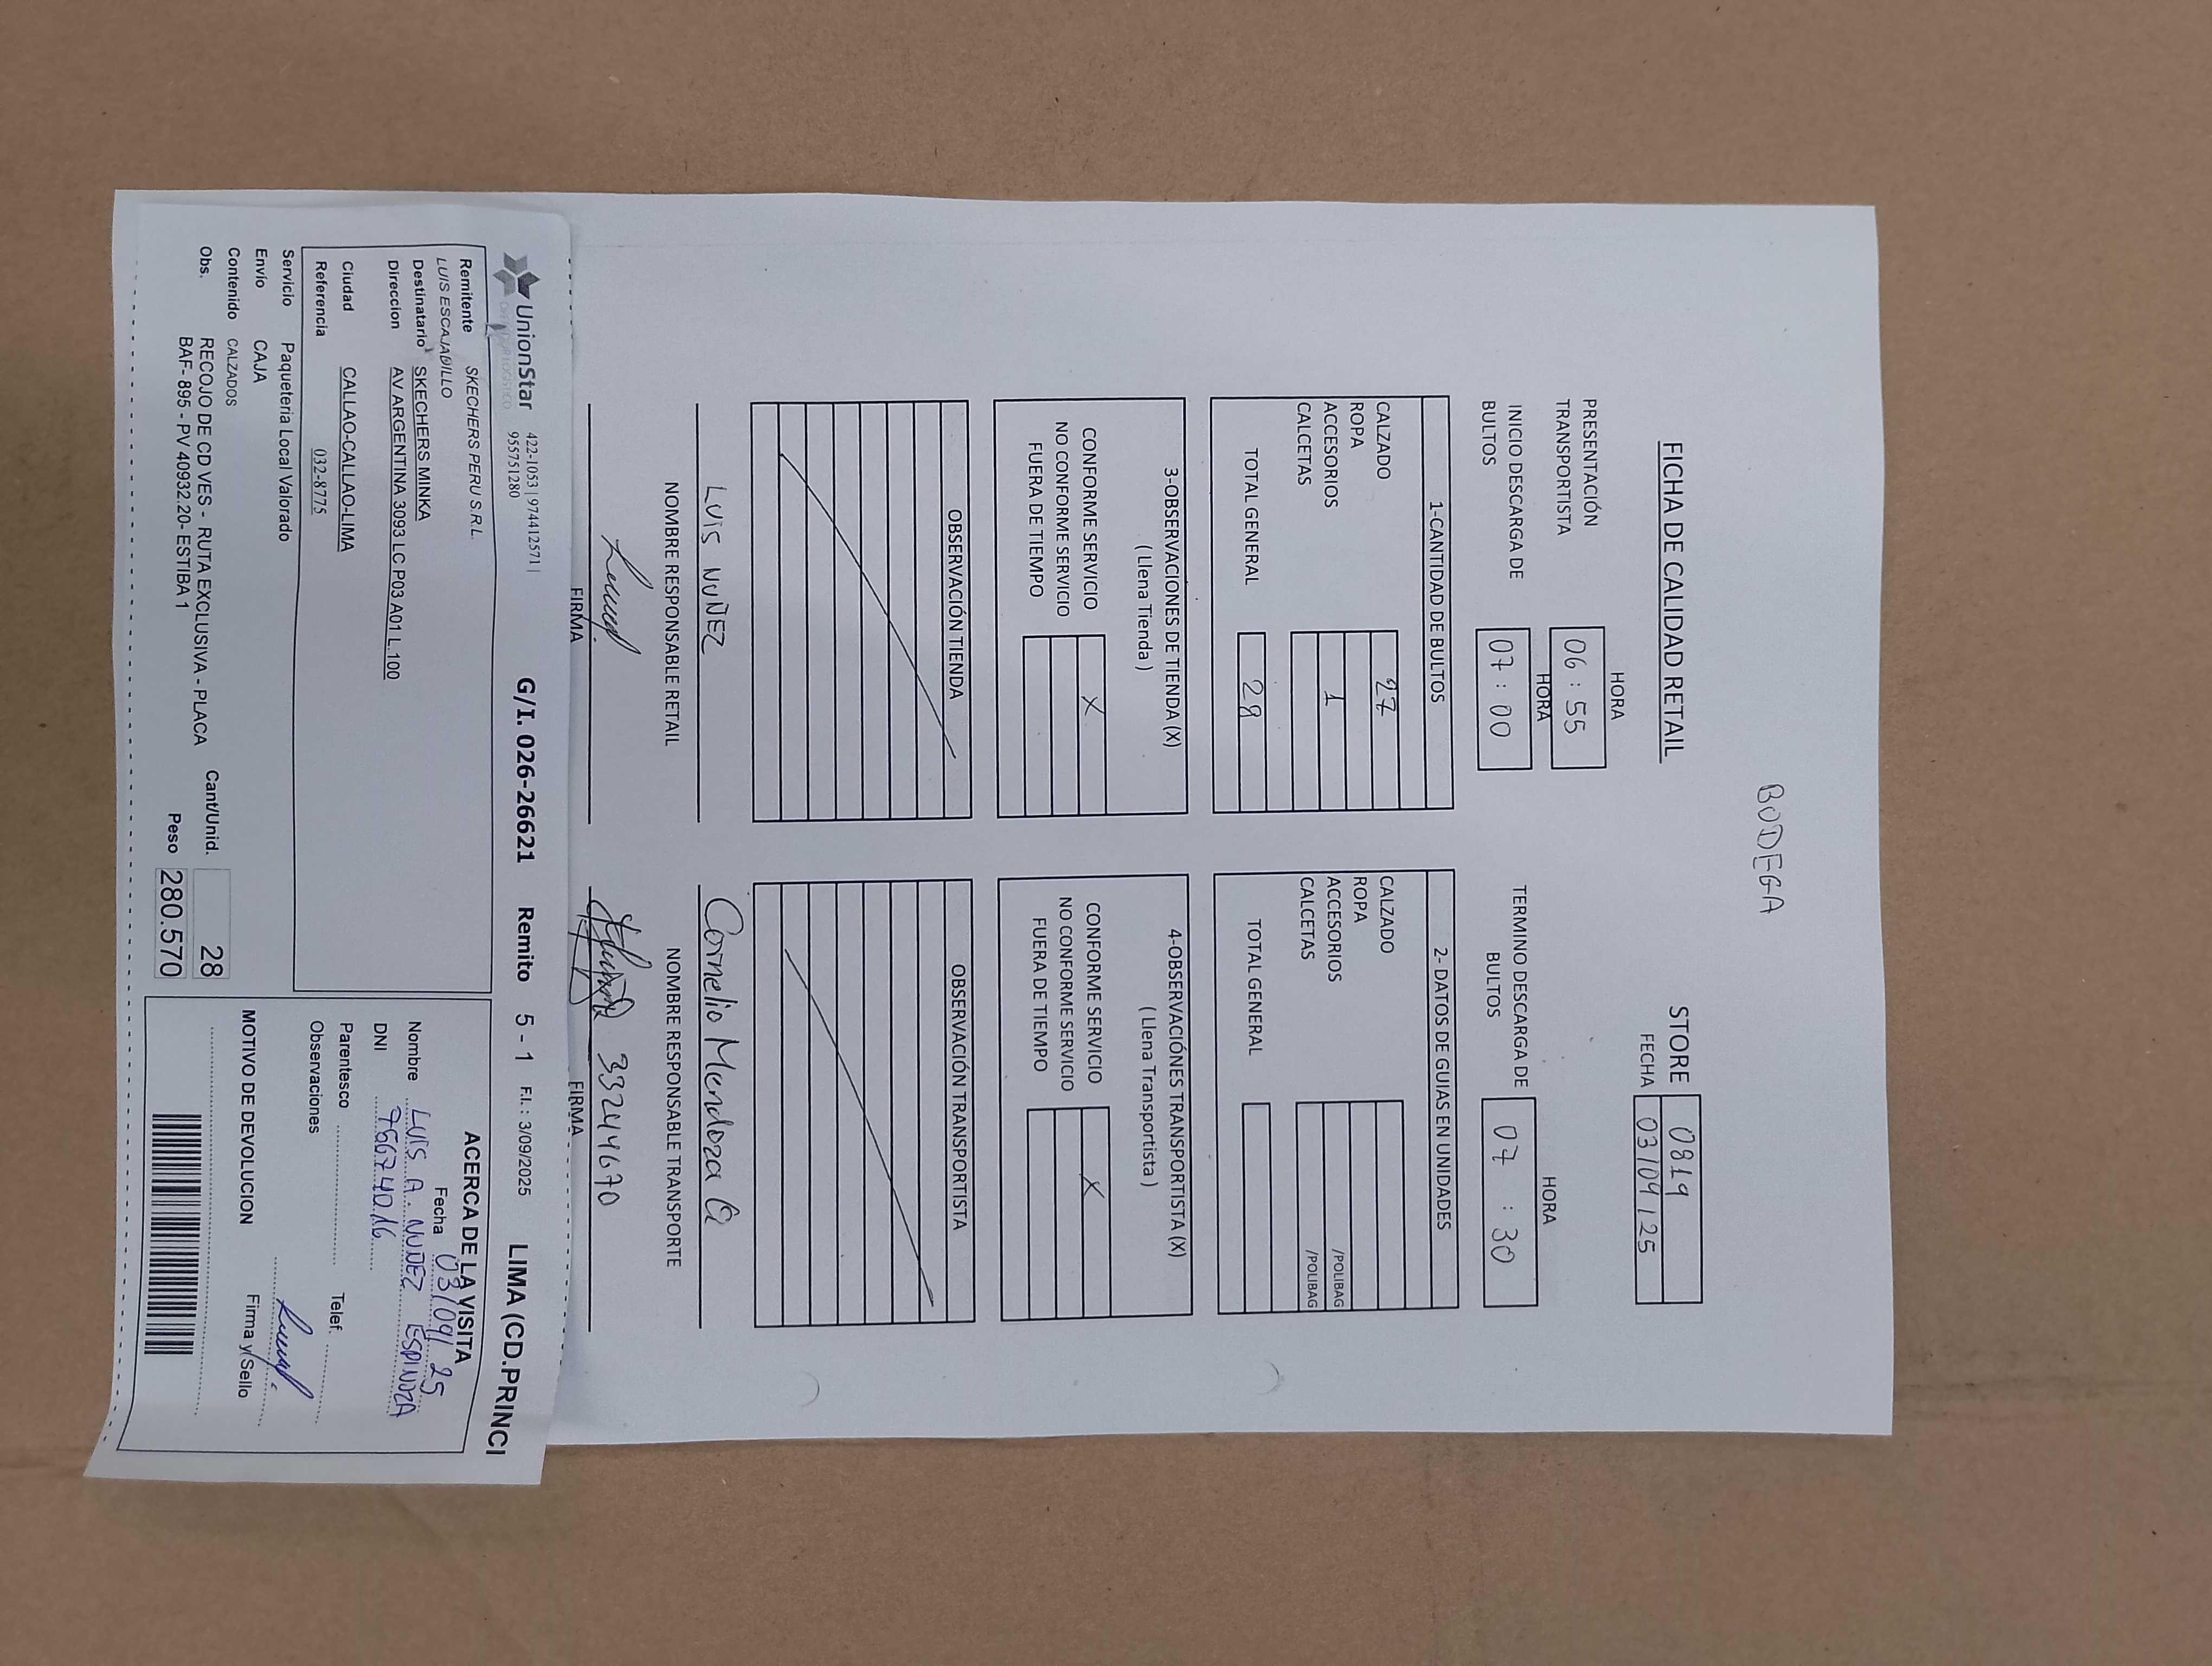 BODEGA
STORE 0819
FECHA 03/09/25
FICHA DE CALIDAD RETAIL
HORA
PRESENTACIÓN TRANSPORTISTA 06:55
HORA
INICIO DESCARGA DE BULTOS 07:00
HORA
TERMINO DESCARGA DE BULTOS 07:30
1-CANTIDAD DE BULTOS
CALZADO 27
ROPA
ACCESORIOS 1
CALCETAS
TOTAL GENERAL 28
2- DATOS DE GUIAS EN UNIDADES
CALZADO
ROPA
ACCESORIOS /POLIBAG
CALCETAS /POLIBAG
TOTAL GENERAL
3-OBSERVACIONES DE TIENDA (X)
( Llena Tienda )
CONFORME SERVICIO X
NO CONFORME SERVICIO
FUERA DE TIEMPO
4-OBSERVACIÓNES TRANSPORTISTA (X)
( Llena Transportista )
CONFORME SERVICIO X
NO CONFORME SERVICIO
FUERA DE TIEMPO
OBSERVACIÓN TIENDA
OBSERVACIÓN TRANSPORTISTA
LUIS NUÑEZ
NOMBRE RESPONSABLE RETAIL
Cornelio Mendoza
NOMBRE RESPONSABLE TRANSPORTE
FIRMA
33244670
FIRMA
UnionStar
OPERADOR LOGÍSTICO
422-1053 | 974412571 |
955751280
G/I. 026-26621 Remito 5 - 1 F.I. : 3/09/2025 LIMA (CD.PRINCI
Remitente SKECHERS PERU S.R.L.
LUIS ESCAJADILLO
Destinatario SKECHERS MINKA
Direccion AV ARGENTINA 3093 LC P03 A01 L.100
Ciudad CALLAO-CALLAO-LIMA
Referencia 032-8775
Servicio Paqueteria Local Valorado
Envío CAJA
Contenido CALZADOS
Obs. RECOJO DE CD VES - RUTA EXCLUSIVA - PLACA
BAF- 895 - PV 40932.20- ESTIBA 1
Cant/Unid. 28
Peso 280.570
ACERCA DE LA VISITA
Fecha 03/09/25
Nombre LUIS A. NUÑEZ ESPINOZA
DNI 76674016
Parentesco Telef.
Observaciones
MOTIVO DE DEVOLUCION
Firma y Sello